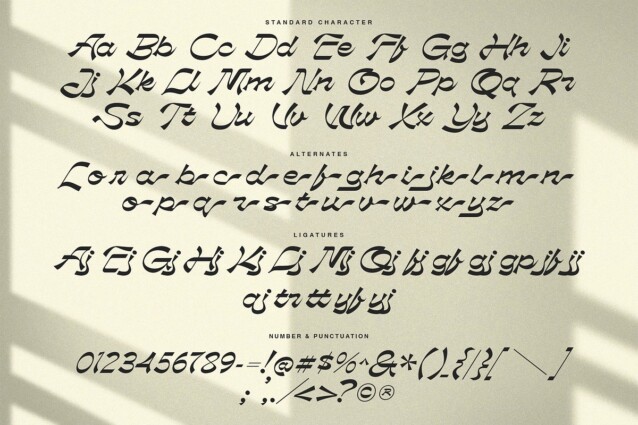 STANDARD CHARACTER
Aa Bb Cc Dd Ee Ff Gg Hh Ii
Jj Kk Ll Mm Nn Oo Pp Qq Rr
Ss Tt Uu Vv Ww Xx Yy Zz
ALTERNATES
L o r a b c d e f g h i j k l m n
o p q r s t u v w x y z
LIGATURES
Aj Ej Gj Hj Kj Lj Mj Qj fj gf gj gp jf jj
qj tr tt yf yj
NUMBER & PUNCTUATION
0123456789-=!@#$%^&*()_{|}[\]
; ,./<>?©®